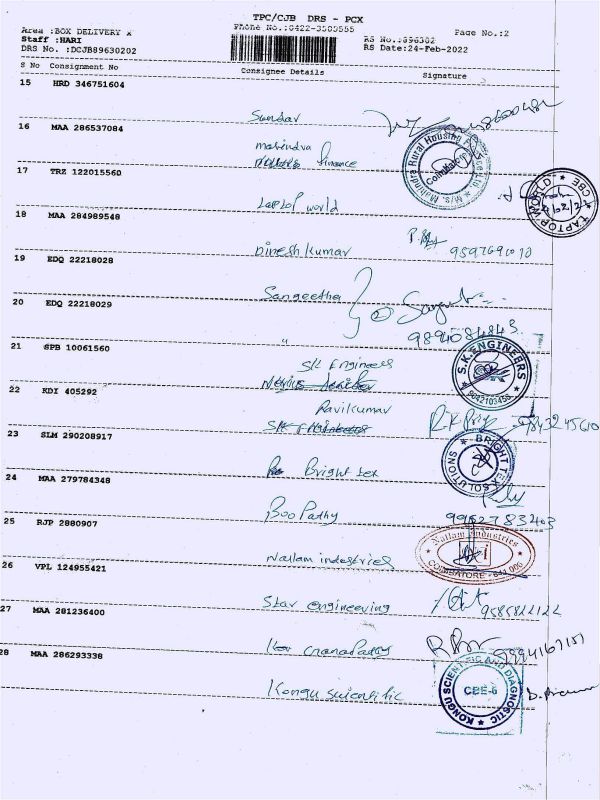 TPC/CJB DRS - PCX
Area :BOX DELIVERY X Phone No.:0422-3505555 Page No.:2
Staff :HARI RS No.:896302
DRS No. :DCJB89630202 RS Date:24-Feb-2022
S No Consignment No Consignee Details Signature
15 HRD 346751604
Sundar
16 MAA 286537084
mahindra
finance
M/s. Mahindra Rural Housing
Coimbatore
17 TRZ 122015560
Laptop world
LAPTOP WORLD CBE
18 MAA 284989548
Dinesh kumar
19 EDQ 22218028
Sangeetha
20 EDQ 22218029
"
2
9894084843
21 SPB 10061560
SK Engineers
S.K. ENGINEERS
22 KDI 405292
Ravikumar
SK Engineers
9843245610
23 SLM 290208917
Bright tex
BRIGHT TEX SOLUTIONS
24 MAA 279784348
Boopathy
25 RJP 2880907
Nallam industries
Nallam Industries
COIMBATORE - 641 006
26 VPL 124955421
Star engineering
27 MAA 281236400
28 MAA 286293338
Kongu scientific
KONGU SCIENTIFIC AND DIAGNOSTIC
CBE-6